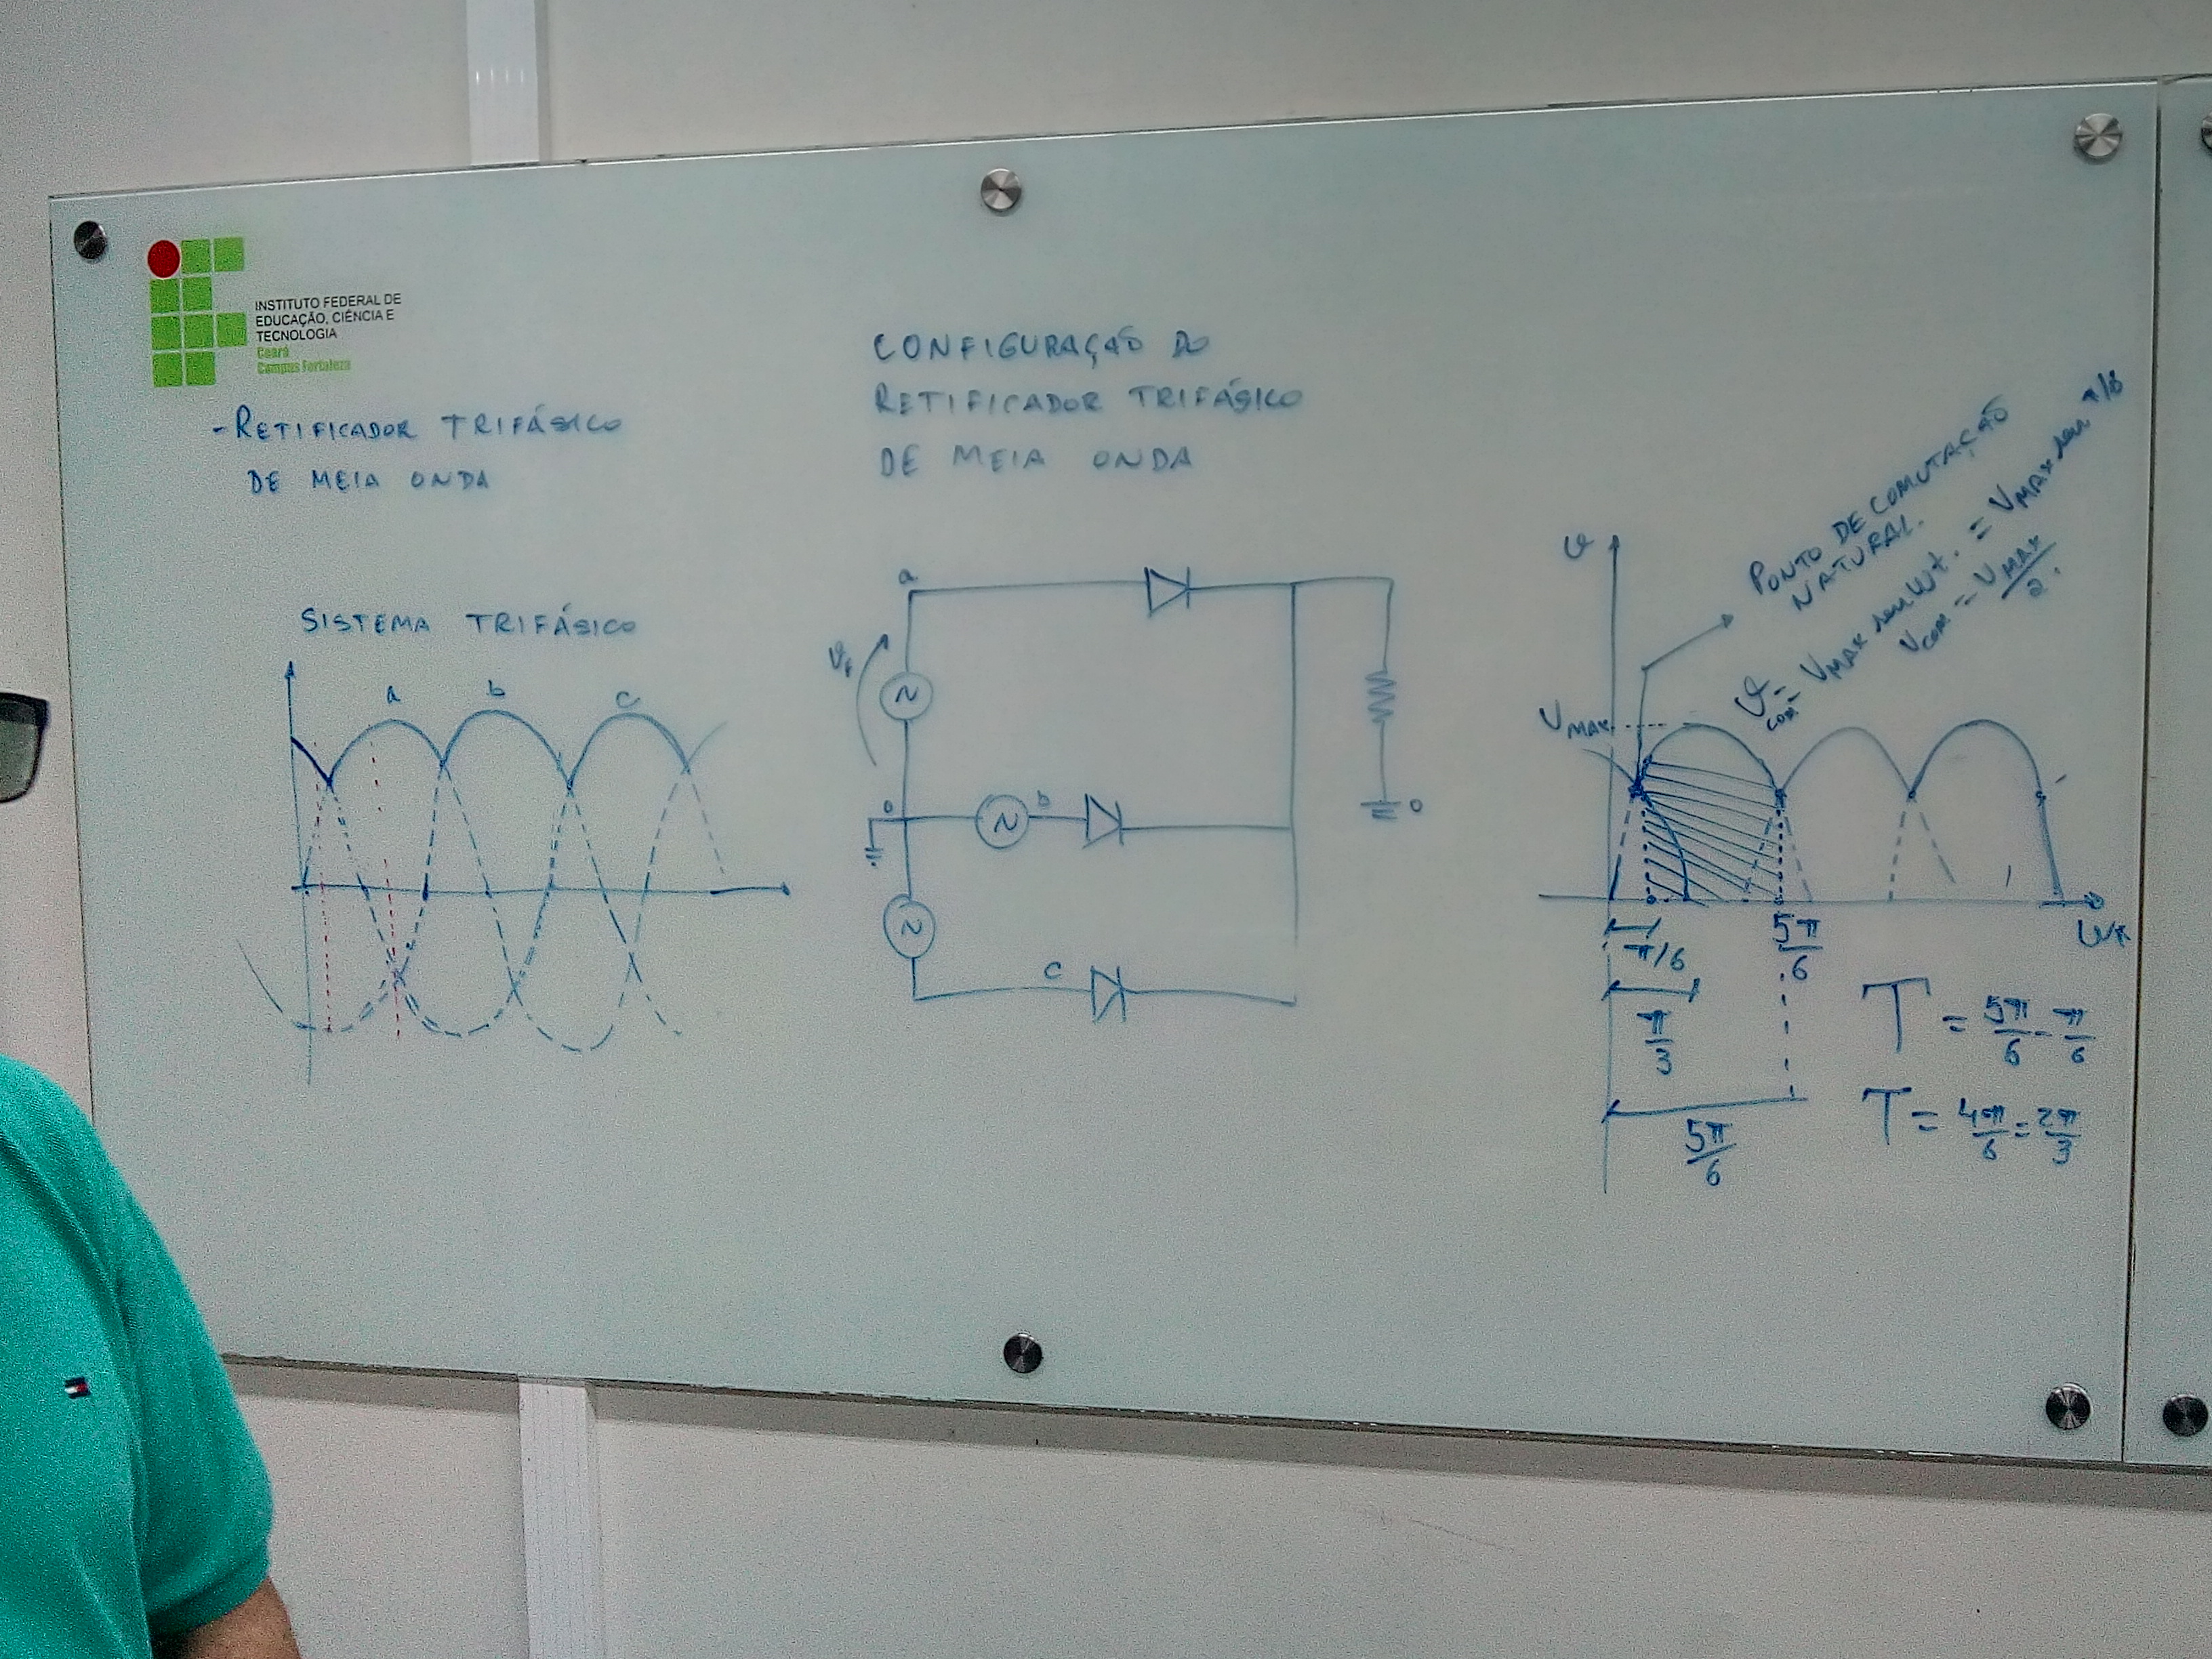 INSTITUTO FEDERAL DE
EDUCAÇÃO, CIÊNCIA E
TECNOLOGIA
Ceará
Campus Fortaleza
- RETIFICADOR TRIFÁSICO
DE MEIA ONDA
SISTEMA TRIFÁSICO
a
b
c
CONFIGURAÇÃO DO
RETIFICADOR TRIFÁSICO
DE MEIA ONDA
a
v
o
b
c
o
v
PONTO DE COMUTAÇÃO
NATURAL.
v com = V MAX sen wt. = V MAX sen π/6
V com = V MAX / 2.
V MAX
wt
π/6
5π/6
π/3
5π/6
T = 5π/6 - π/6
T = 4π/6 = 2π/3